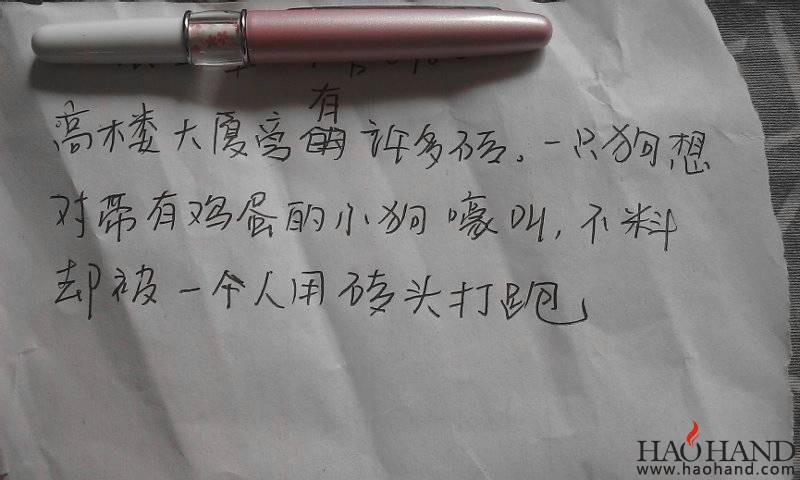 高楼大厦旁有许多砖。一只狗想
对带有鸡蛋的小狗嚎叫，不料
却被一个人用砖头打跑
HAOHAND
www.haohand.com